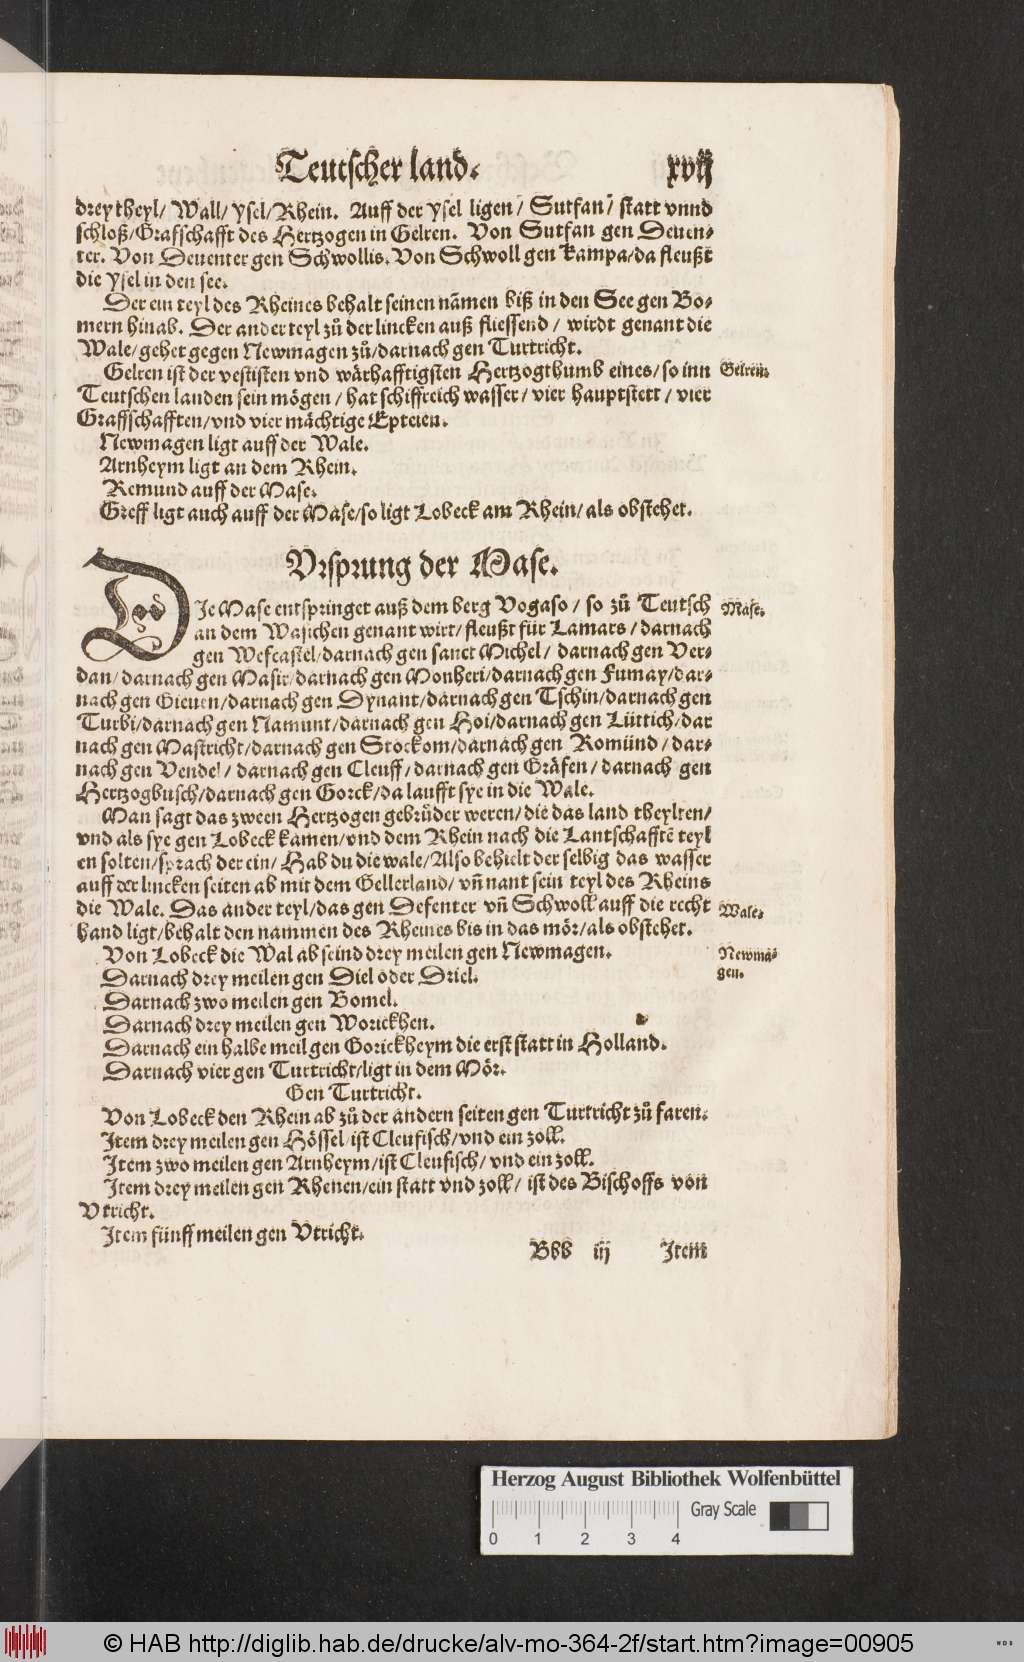 Teutscher land. xvij
drey theyl/ Wall/ Ysel/ Rhein. Auff der Ysel ligen/ Sutfan/ statt vnnd
schloß/ Grafschafft des Hertzogen in Gelren. Von Sutfan gen Deuen-
ter. Von Deuenter gen Schwollis. Von Schwoll gen Kampa/ da fleußt
die Ysel in den see.
Der ein teyl des Rheines behalt seinen nãmen biß in den See gen Bo-
mern hinab. Der ander teyl zů der lincken auß fliessend/ wirdt genant die
Wale/ gehet gegen Newmagen zů/ darnach gen Turtricht.
Gelren ist der vestisten vnd wårhafftigsten Hertzogthumb eines/ so inn
Gelren.
Teutschen landen sein mögen/ hat schiffreich wasser/ vier hauptstett/ vier
Graffschafften/ vnd vier måchtige Epteien.
Newmagen ligt auff der Wale.
Arnheym ligt an dem Rhein.
Remund auff der Mase.
Greff ligt auch auff der Mase/ so ligt Lobeck am Rhein/ als obstehet.
Vrsprung der Mase.
DIe Mase entspringet auß dem berg Vogaso/ so zů Teutsch
Mase.
an dem Wasichen genant wirt/ fleußt für Lamars/ darnach
gen Wefcastel/ darnach gen sanct Michel/ darnach gen Ver-
dan/ darnach gen Masir/ darnach gen Monheri/ darnach gen Fumay/ dar-
nach gen Gieuen/ darnach gen Dynant/ darnach gen Tschin/ darnach gen
Turbi/ darnach gen Namunt/ darnach gen Hoi/ darnach gen Lüttich/ dar
nach gen Mastricht/ darnach gen Stockom/ darnach gen Romünd/ dar-
nach gen Vendel/ darnach gen Cleuff/ darnach gen Gråfen/ darnach gen
Hertzogbusch/ darnach gen Gorck/ da laufft sye in die Wale.
Man sagt das zween Hertzogen gebrůder weren/ die das land theylten/
vnd als sye gen Lobeck kamen/ vnd dem Rhein nach die Lantschafftẽ teyl
en solten/ sprach der ein/ Hab du die wale/ Also behielt der selbig das wasser
auff der lincken seiten ab mit dem Gellerland/ vñ nant sein teyl des Rheins
die Wale. Das ander teyl/ das gen Defenter vñ Schwoll auff die recht
Wale.
hand ligt/ behalt den nammen des Rheines bis in das mör/ als obstehet.
Von Lobeck die Wal ab seind drey meilen gen Newmagen.
Newma-
gen.
Darnach drey meilen gen Diel oder Driel.
Darnach zwo meilen gen Bomel.
Darnach drey meilen gen Worickhen.
Darnach ein halbe meil gen Gorickheym die erst statt in Holland.
Darnach vier gen Turtricht/ ligt in dem Mör.
Gen Turtricht.
Von Lobeck den Rhein ab zů der andern seiten gen Turtricht zů faren.
Item drey meilen gen Hössel/ ist Cleufisch/ vnd ein zoll.
Item zwo meilen gen Arnheym/ ist Cleufisch/ vnd ein zoll.
Item drey meilen gen Rhenen/ ein statt vnd zoll/ ist des Bischoffs von
Vtricht.
Item fünff meilen gen Vtricht.
Bbb iij Item
Herzog August Bibliothek Wolfenbüttel
Gray Scale
0 1 2 3 4
© HAB http://diglib.hab.de/drucke/alv-mo-364-2f/start.htm?image=00905